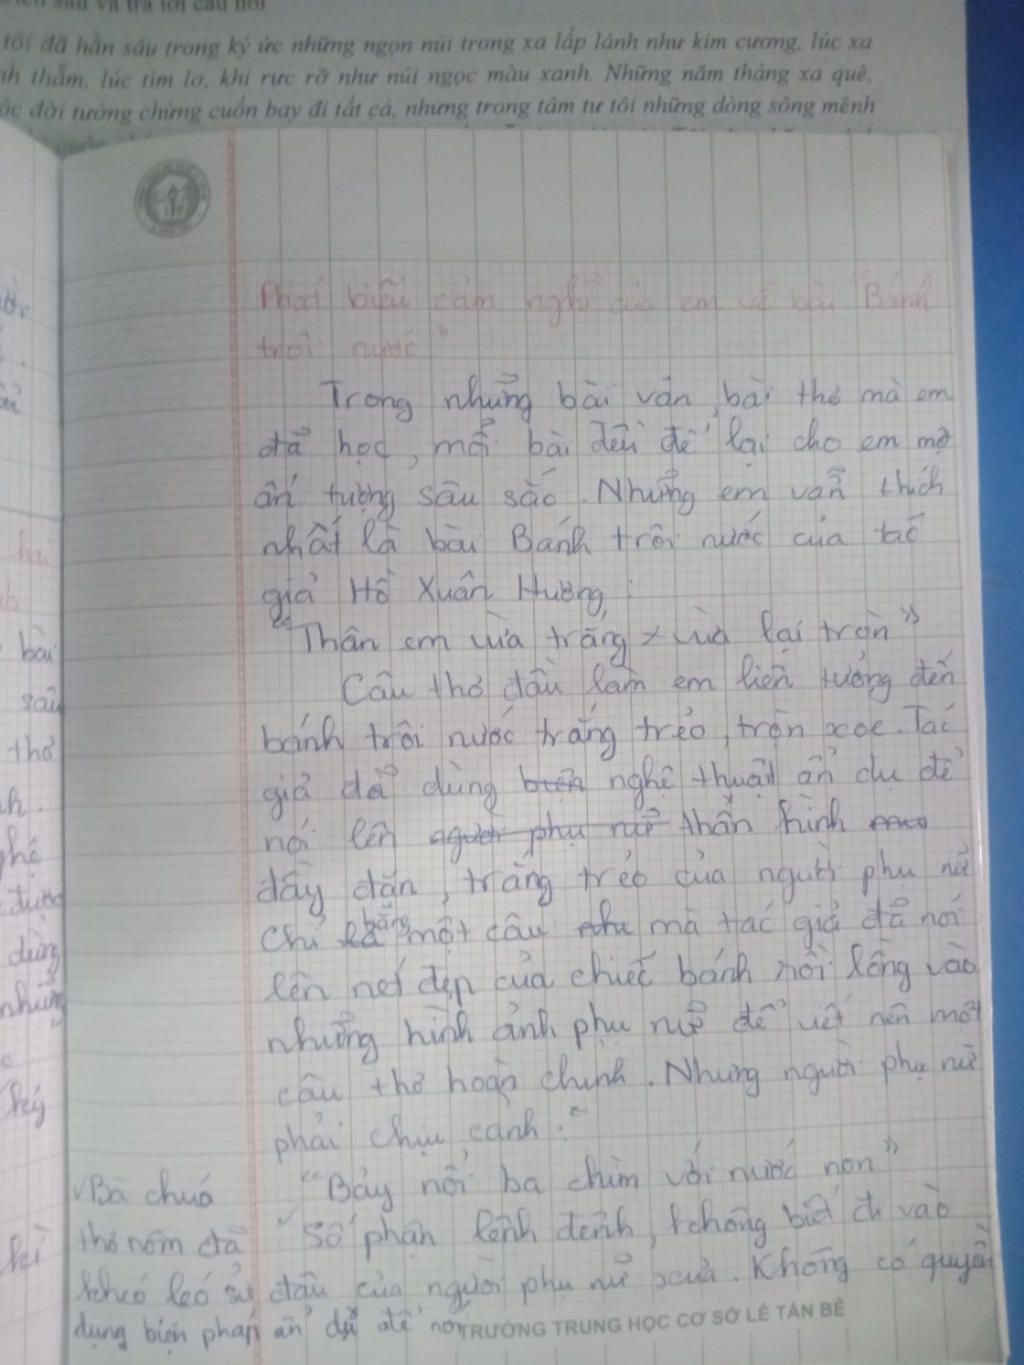 sau và trả lời câu hỏi
tôi đã hằn sâu trong ký ức những ngọn núi trong xa lấp lánh như kim cương, lúc xa
nh thẫm, lúc tím lơ, khi rực rỡ như núi ngọc màu xanh. Những năm tháng xa quê,
ộc đời tưởng chừng cuốn bay đi tất cả, nhưng trong tâm tư tôi những dòng sông mênh
Phát biểu cảm nghĩ của em về bài "Bánh
trôi nước"
Trong những bài văn, bài thơ mà em
đã học, mỗi bài đều để lại cho em một
ấn tượng sâu sắc. Nhưng em vẫn thích
nhất là bài Bánh trôi nước của tác
giả Hồ Xuân Hương:
"Thân em vừa trắng, vừa lại tròn"
Câu thơ đầu làm em liên tưởng đến
bánh trôi nước trắng trẻo, tròn xoe. Tác
giả đã dùng biện nghệ thuật ẩn dụ để
nói lên người phụ nữ thân hình
đầy đặn, trắng trẻo của người phụ nữ
chỉ bằng một câu thơ mà tác giả đã nói
lên nét đẹp của chiếc bánh rồi lồng vào
những hình ảnh phụ nữ để viết nên một
câu thơ hoàn chỉnh. Nhưng người phụ nữ
phải chịu cảnh:
"Bảy nổi ba chìm với nước non"
Số phận lênh đênh, không biết đi vào
đâu của người phụ nữ xưa. Không có quyền
√Bà chúa
thơ nôm đã
khéo léo sử
dụng biện pháp ẩn dụ để nói
TRƯỜNG TRUNG HỌC CƠ SỞ LÊ TẤN BÊ
bài
sâu
thơ
nh.
nghệ
được
dùng
những
ký